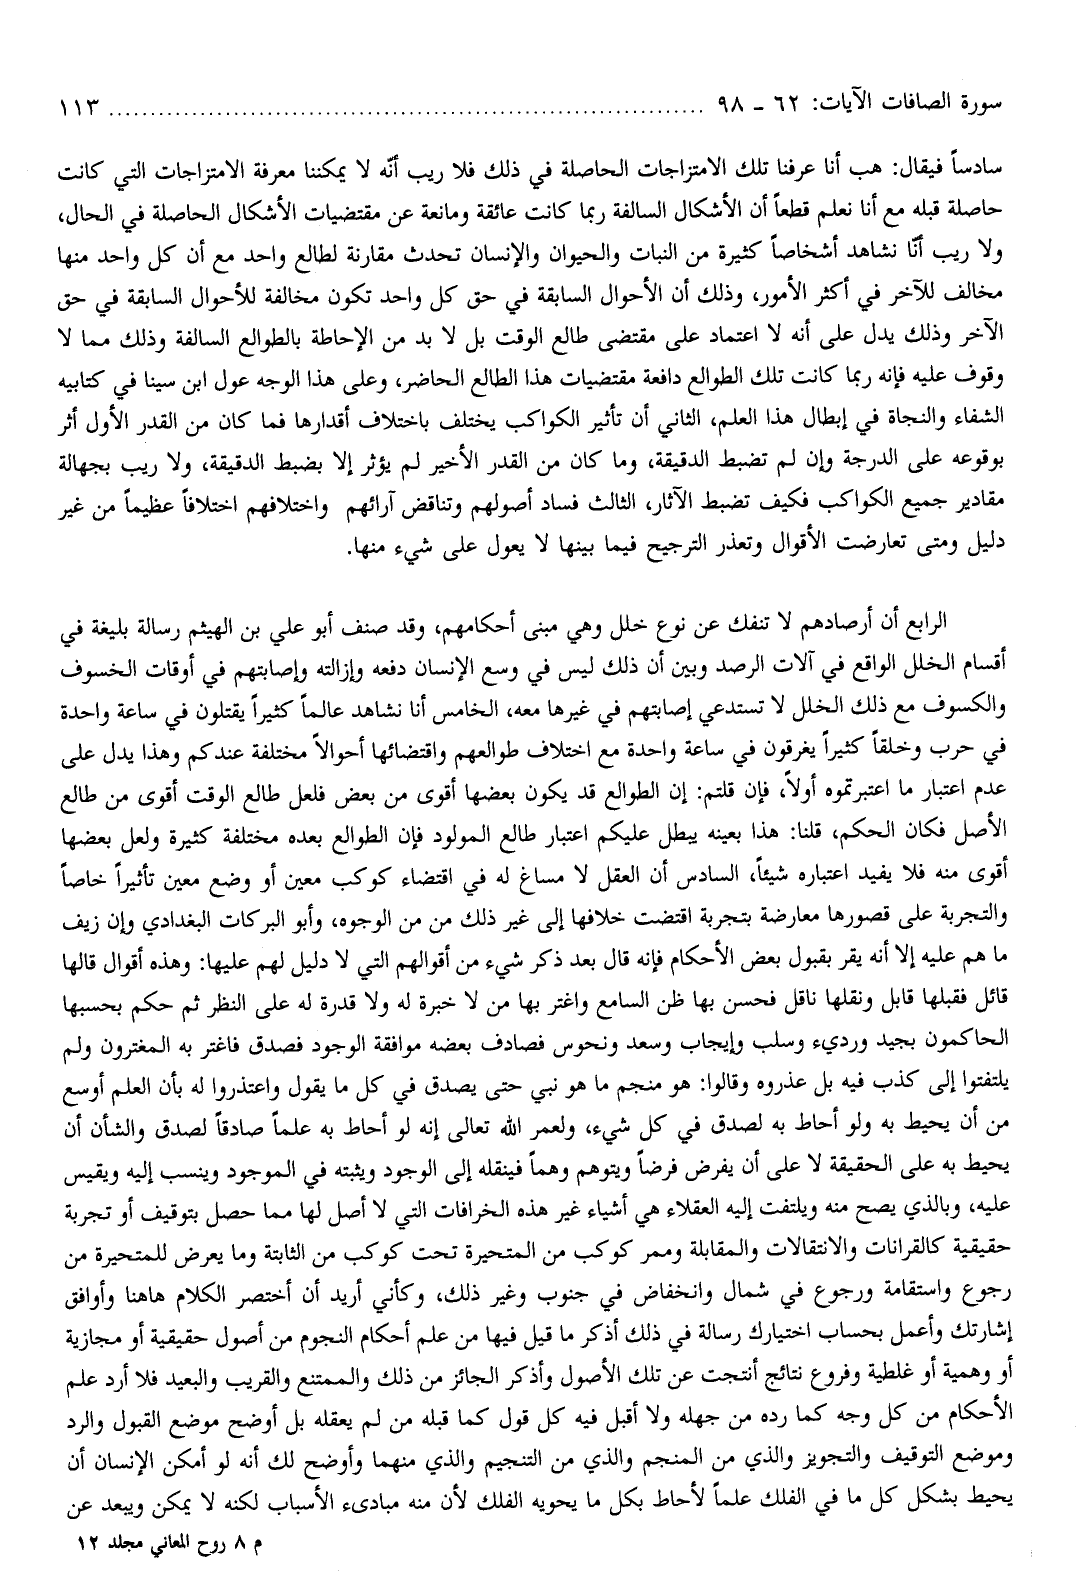 سورة الصافات الآيات: ٦٢ - ٩٨ ........................................................................ ١١٣
سادساً فيقال: هب أنا عرفنا تلك الامتزاجات الحاصلة في ذلك فلا ريب أنّه لا يمكننا معرفة الامتزاجات التي كانت
حاصلة قبله مع أنا نعلم قطعاً أن الأشكال السالفة ربما كانت عائقة ومانعة عن مقتضيات الأشكال الحاصلة في الحال،
ولا ريب أنّا نشاهد أشخاصاً كثيرة من النبات والحيوان والإنسان تحدث مقارنة لطالع واحد مع أن كل واحد منها
مخالف للآخر في أكثر الأمور، وذلك أن الأحوال السابقة في حق كل واحد تكون مخالفة للأحوال السابقة في حق
الآخر وذلك يدل على أنه لا اعتماد على مقتضى طالع الوقت بل لا بد من الإحاطة بالطوالع السالفة وذلك مما لا
وقوف عليه فإنه ربما كانت تلك الطوالع دافعة مقتضيات هذا الطالع الحاضر، وعلى هذا الوجه عول ابن سينا في كتابيه
الشفاء والنجاة في إبطال هذا العلم، الثاني أن تأثير الكواكب يختلف باختلاف أقدارها فما كان من القدر الأول أثر
بوقوعه على الدرجة وإن لم تضبط الدقيقة، وما كان من القدر الأخير لم يؤثر إلا بضبط الدقيقة، ولا ريب بجهالة
مقادير جميع الكواكب فكيف تضبط الآثار، الثالث فساد أصولهم وتناقض آرائهم واختلافهم اختلافاً عظيماً من غير
دليل ومتى تعارضت الأقوال وتعذر الترجيح فيما بينها لا يعول على شيء منها.
الرابع أن أرصادهم لا تنفك عن نوع خلل وهي مبنى أحكامهم، وقد صنف أبو علي بن الهيثم رسالة بليغة في
أقسام الخلل الواقع في آلات الرصد وبين أن ذلك ليس في وسع الإنسان دفعه وإزالته وإصابتهم في أوقات الخسوف
والكسوف مع ذلك الخلل لا تستدعي إصابتهم في غيرها معه، الخامس أنا نشاهد عالماً كثيراً يقتلون في ساعة واحدة
في حرب وخلقاً كثيراً يغرقون في ساعة واحدة مع اختلاف طوالعهم واقتضائها أحوالاً مختلفة عندكم وهذا يدل على
عدم اعتبار ما اعتبرتموه أولاً، فإن قلتم: إن الطوالع قد يكون بعضها أقوى من بعض فلعل طالع الوقت أقوى من طالع
الأصل فكان الحكم، قلنا: هذا بعينه يبطل عليكم اعتبار طالع المولود فإن الطوالع بعده مختلفة كثيرة ولعل بعضها
أقوى منه فلا يفيد اعتباره شيئاً، السادس أن العقل لا مساغ له في اقتضاء كوكب معين أو وضع معين تأثيراً خاصاً
والتجربة على قصورها معارضة بتجربة اقتضت خلافها إلى غير ذلك من من الوجوه، وأبو البركات البغدادي وإن زيف
ما هم عليه إلا أنه يقر بقبول بعض الأحكام فإنه قال بعد ذكر شيء من أقوالهم التي لا دليل لهم عليها: وهذه أقوال قالها
قائل فقبلها قابل ونقلها ناقل فحسن بها ظن السامع واغتر بها من لا خبرة له ولا قدرة له على النظر ثم حكم بحسبها
الحاكمون بجيد ورديء وسلب وإيجاب وسعد ونحوس فصادف بعضه موافقة الوجود فصدق فاغتر به المغترون ولم
يلتفتوا إلى كذب فيه بل عذروه وقالوا: هو منجم ما هو نبي حتى يصدق في كل ما يقول واعتذروا له بأن العلم أوسع
من أن يحيط به ولو أحاط به لصدق في كل شيء، ولعمر الله تعالى إنه لو أحاط به علماً صادقاً لصدق والشأن أن
يحيط به على الحقيقة لا على أن يفرض فرضاً ويتوهم وهماً فينقله إلى الوجود ويثبته في الموجود وينسب إليه ويقيس
عليه، وبالذي يصح منه ويلتفت إليه العقلاء هي أشياء غير هذه الخرافات التي لا أصل لها مما حصل بتوقيف أو تجربة
حقيقية كالقرانات والانتقالات والمقابلة وممر كوكب من المتحيرة تحت كوكب من الثابتة وما يعرض للمتحيرة من
رجوع واستقامة ورجوع في شمال وانخفاض في جنوب وغير ذلك، وكأني أريد أن أختصر الكلام هاهنا وأوافق
إشارتك وأعمل بحساب اختيارك رسالة في ذلك أذكر ما قيل فيها من علم أحكام النجوم من أصول حقيقية أو مجازية
أو وهمية أو غلطية وفروع نتائج أنتجت عن تلك الأصول وأذكر الجائز من ذلك والممتنع والقريب والبعيد فلا أرد علم
الأحكام من كل وجه كما رده من جهله ولا أقبل فيه كل قول كما قبله من لم يعقله بل أوضح موضع القبول والرد
وموضع التوقيف والتجويز والذي من المنجم والذي من التنجيم والذي منهما وأوضح لك أنه لو أمكن الإنسان أن
يحيط بشكل كل ما في الفلك علماً لأحاط بكل ما يحويه الفلك لأن منه مبادىء الأسباب لكنه لا يمكن ويبعد عن
م ٨ روح المعاني مجلد ١٢